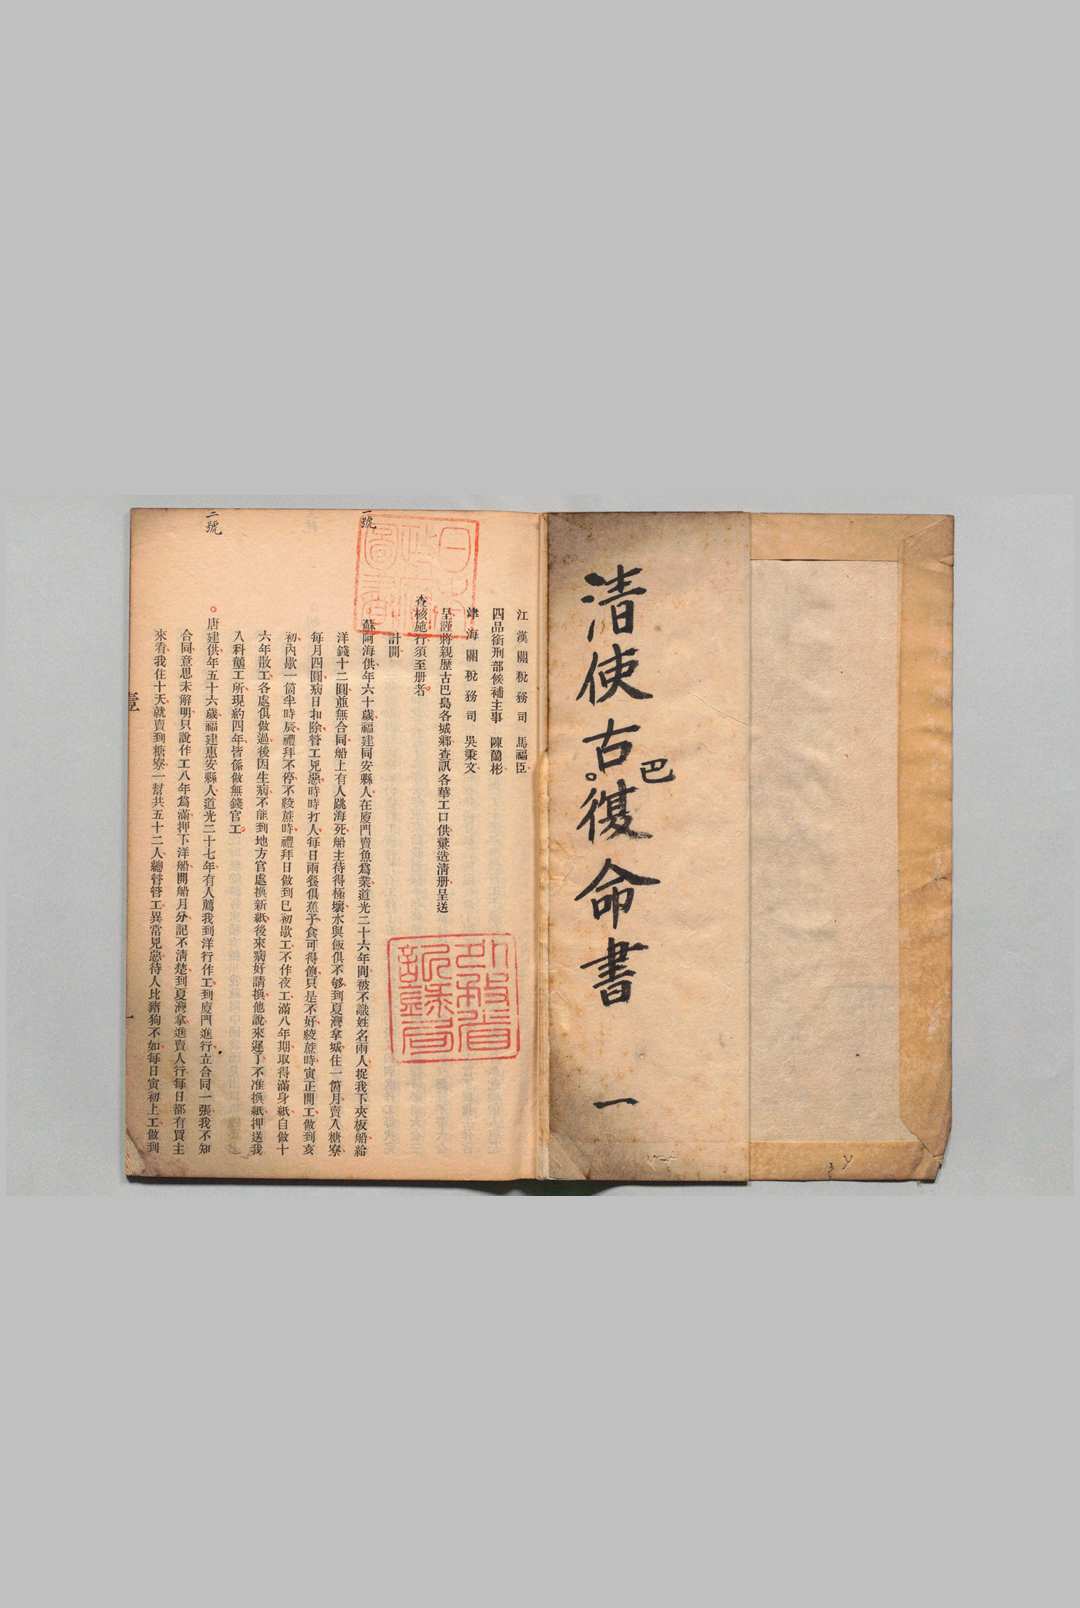 清使古巴復命書 一
江漢關稅務司 馬福臣
四品銜刑部候補主事 陳蘭彬
津海關稅務司 吳秉文
呈謹將親歷古巴島各城鄉查訊各華工口供彙造清册呈送
查核施行須至册者
計開
一號
蘇阿海供年六十歲福建同安縣人在廈門賣魚爲業道光二十六年間被不識姓名兩人捉我下夾板船給
洋錢十二圓並無合同船上有人跳海死船主待得極壞水與飯俱不够到夏灣拿城住一箇月賣入糖寮
每月四圓病日扣除管工兇惡時時打人每日兩餐俱蕉子食可得飽只是不好絞蔗時寅正開工做到亥
初內歇一箇半時辰禮拜不停不絞蔗時禮拜日做到巳初歇工不作夜工滿八年期取得滿身紙自做十
六年散工各處俱做過後因生病不能到地方官處換新紙後來病好請換他說來遲了不准換紙押送我
入科蘢工所現約四年皆係做無錢官工
二號
唐建供年五十六歲福建惠安縣人道光二十七年有人薦我到洋行作工到廈門進行立合同一張我不知
合同意思未解明只說作工八年爲滿押下洋船開船月分記不清楚到夏灣拿進賣人行每日都有買主
來看我住十天就賣到糖寮一幫共五十二人總管管工異常兇惡待人比豬狗不如每日寅初上工做到
壹
一